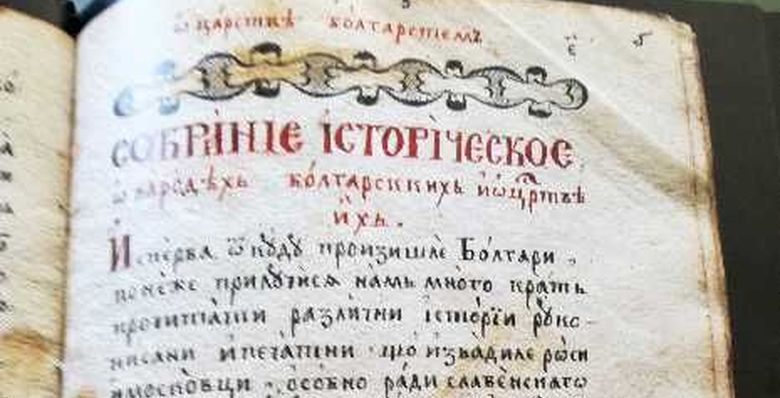 ѡ҆ царствѣ болгарстемъ
є҃ 5
СОБРАНІЕ ІСТОРИЧЕСКОЕ
ѡ҆ народѣхь болгарскихь и҆ ѡ҆ црⷭ҇твѣ
и҆хь.
Исперва ѿ кꙋдꙋ произишле Болгари,
понеже прилꙋчисѧ намь много крать
прочитати различни історїи рꙋко-
писани и҆ печатни що извадиле рꙋси
и҆ московци, ѻсобно ради славенскаго